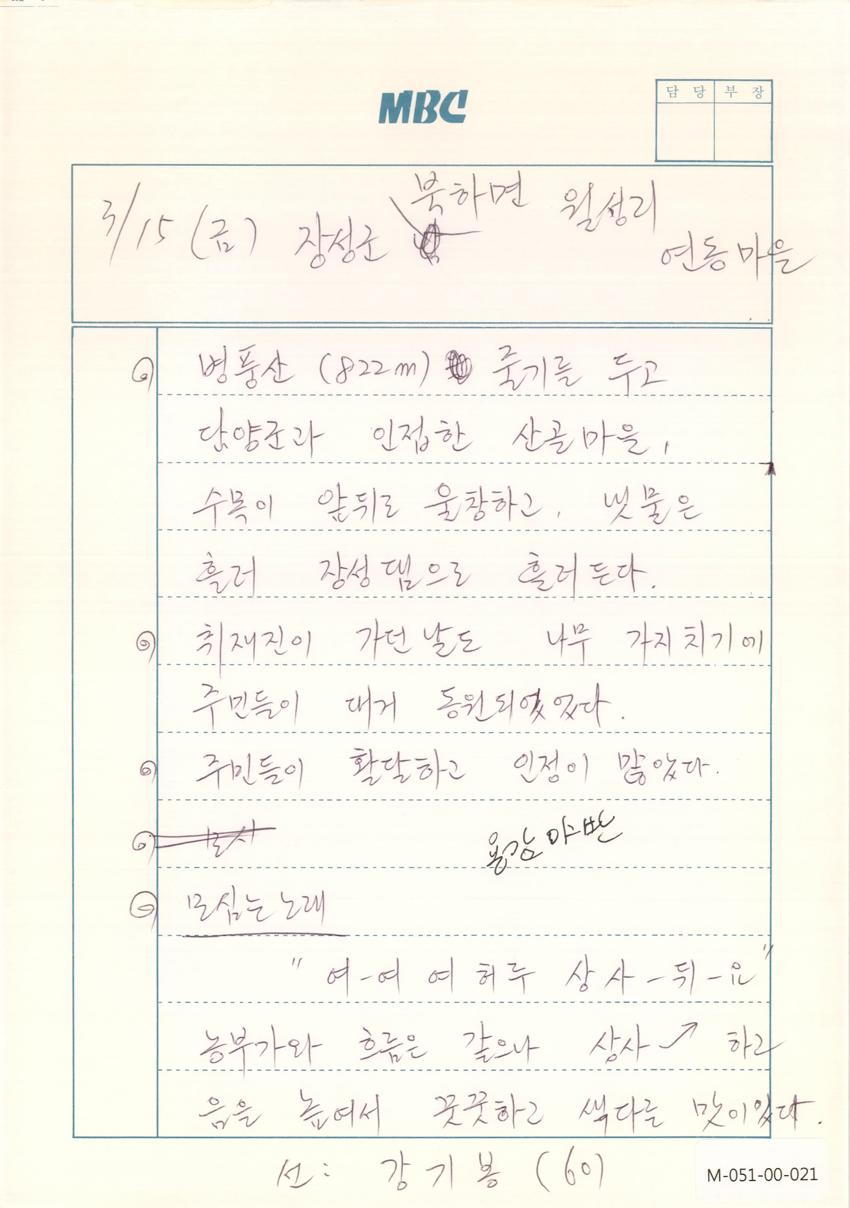 MBC
담당 부장
3/15 (금) 장성군 북하면 월성리
연동마을
병풍산 (822m) 줄기를 두고
담양군과 인접한 산골마을,
수목이 앞뒤로 울창하고, 냇물은
흘러 장성댐으로 흘러든다.
취재진이 가던날도 나무 가지치기에
주민들이 대거 동원되었었다.
주민들이 활달하고 인정이 많았다.
모심는노래
"여-여 여허루 상사-뒤-요"
농부가와 흐름은 같으나 상사↗ 하고
음을 높여서 꿋꿋하고 색다른 맛이있다.
선: 강기봉 (60)
M-051-00-021